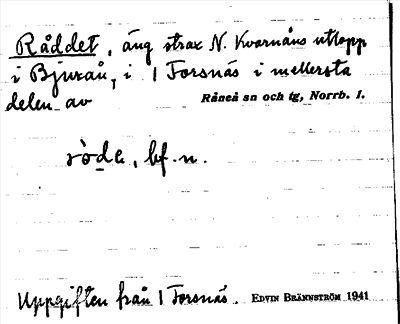 Råddet, äng strax N. Kvarnåns utlopp
i Bjuraå, i 1 Forsnäs i mellersta
delen av Råneå sn och tg, Norrb. l.
ròde, bf. n.
Uppgiften från 1 Forsnäs. EDVIN BRÄNNSTRÖM 1941